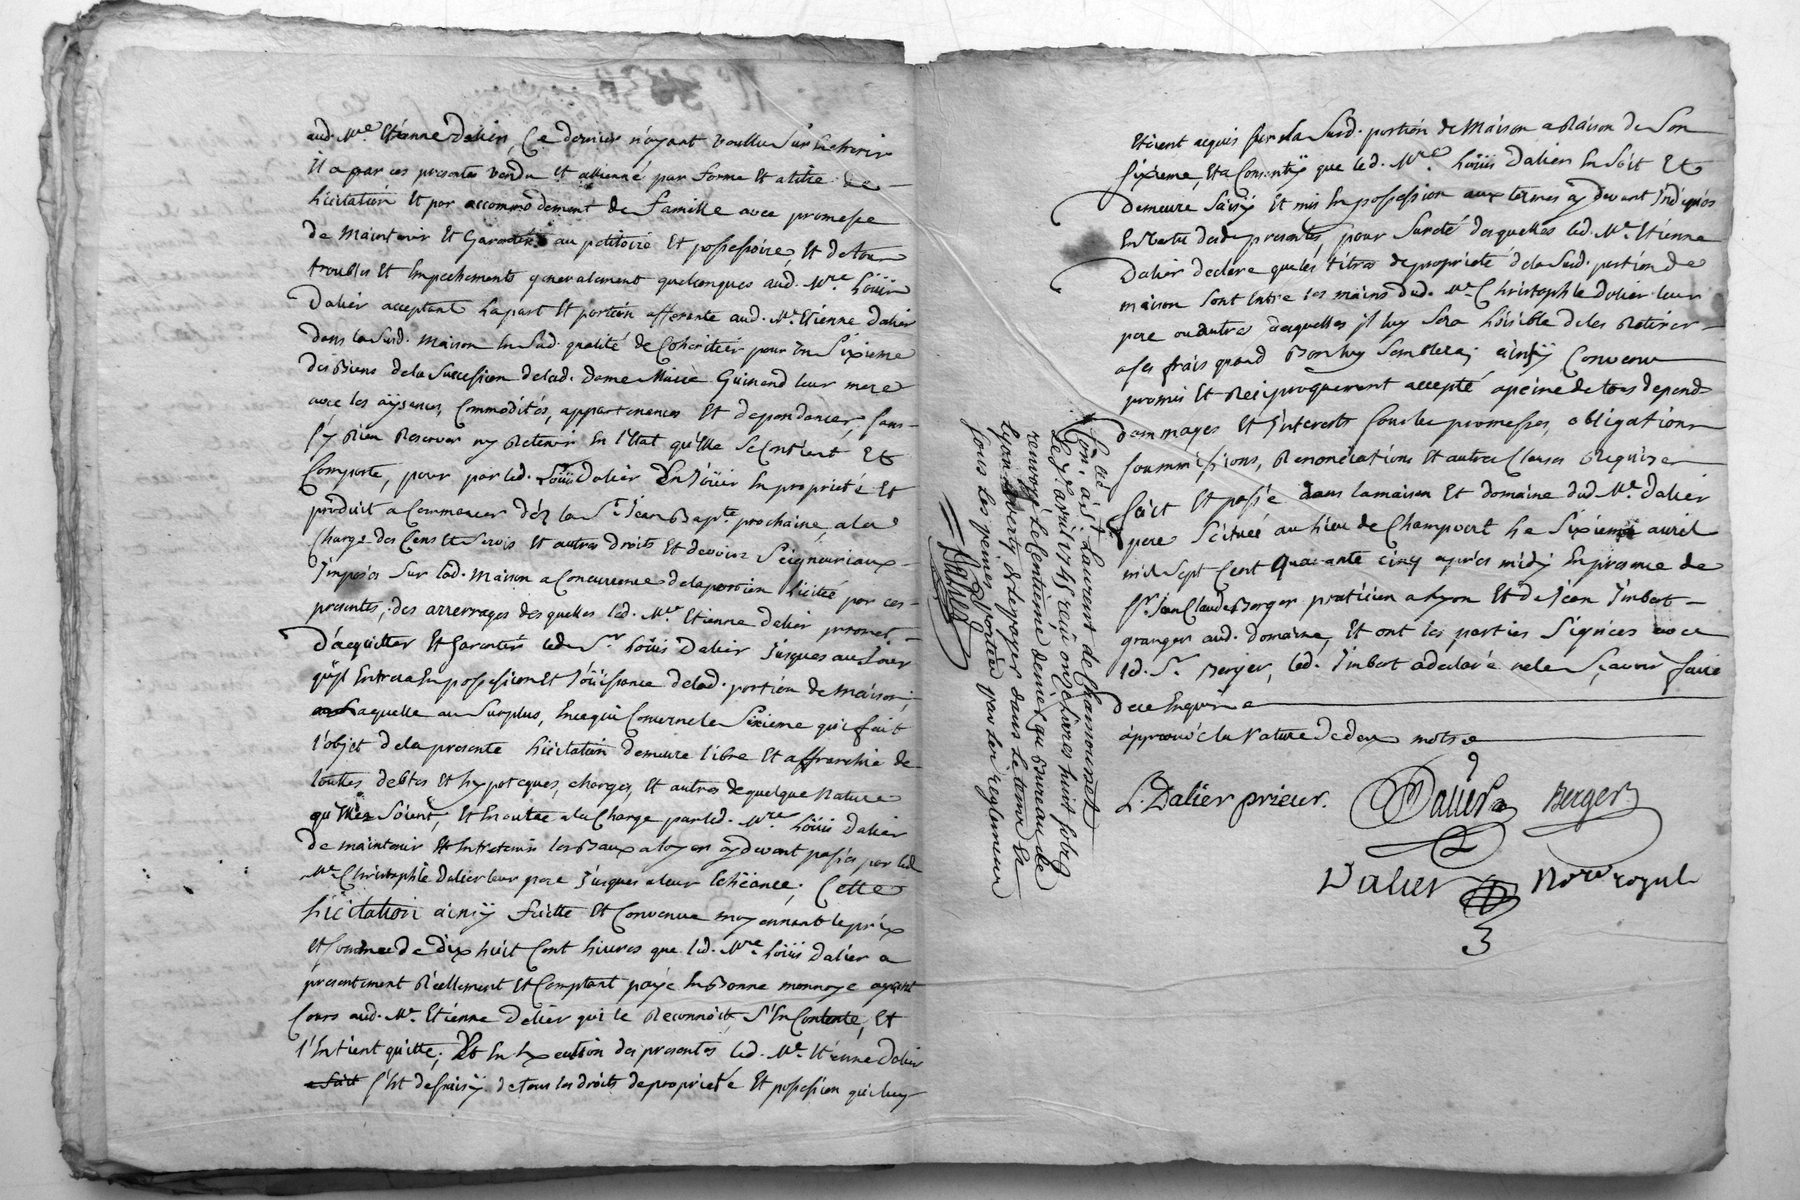 aud. Mre. Etienne Dalier, Ce dernier n'ayant voullu Surencherir
Il a par ces presentes vendu Et allienné par forme Et a titre de
Licitation Et par accommodement de famille avec promesse
de Maintenir Et Garantir au petitoire Et possessoire, Et de tous
troubles Et Empechements generalement quelconques aud. Mre. Loüis
Dalier acceptant La part Et portion afferente aud. Mr. Etienne Dalier
dans la Susd. maison En Sad. qualité de Coheritier pour Un Sixieme
des Biens de la Succession de lad. dame Marie Guinand leur mere
avec les aÿsances, Commodités, appartenances Et dependances, Sans
S'y Rien Reserver ny Retenir En l'Etat qu'Elle Se Contient Et
Comporte, pour par led. Loüis Dalier En Joüir En proprieté Et
produit a Commencer dés la St. Jean Bapte. prochaine, a la
Charge des Cens Et Servis Et autres Droits Et devoirs Seigneuriaux
Imposés Sur lad. Maison a Concurrence de la portion licitée par ces
presentes, des arrerrages des quelles led. Mre. Etienne Dalier promet
D'acquitter Et Garentir led. Sr. Loüis Dalier Jusques au Jour
qu'Jl Entrera En possession Et Joüissance de lad. portion de maison,
Laquelle au Surplus, En ce qui Concerne le Sixieme qui fait
l'objet de la presente Licitation demeure libre Et affranchie de
touttes debtes Et hypoteques, charges, Et autres de quelque Nature
qu'Elles Soient, Et En outre a la Charge par led. Mre. Loüis Dalier
de maintenir Et Entretenir les Baux a loyer cÿ devant passés par led.
Mr. Christophle Dalier leur pere Jusques a leur Echéance; Cette
Licitation ainsÿ faitte Et Convenue moyennant le prix
Et Somme de dix huit Cent Livres que led. Mre. Loüis Dalier a
presentement Réellement Et Comptant payé En Bonne monnoye ayant
Cours aud. Mr. Etienne Dalier qui le Reconnoit S'En Contente, Et
l'En tient quitte; Et En Execution des presentes led. Mr. Etienne Dalier
S'Est desaisÿ de tous les droits de proprieté Et possession qui luy
Etoient acquis Sur la Susd. portion de Maison a Raison de Son
Sixieme, Et a Consentÿ que led. Mre. Loüis Dalier En Soit Et
demeure Saisÿ Et mis En possession aux termes cÿ devant Indiqués
En Vertu desd. presentes, pour Sureté desquelles led. Mr. Etienne
Dalier declare que les titres de proprieté de la Susd. portion de
maison Sont Entre les mains dud. Mr. Christophle Dalier leur
pere ou autres desquelles jl luy Sera Loisible de les Retirer
a Ses frais quand Bon luy Semblera; ainsÿ Convenu
promis Et Reciproquement accepté a peine de tous depends
dommages Et Interests Sous les promesses, obligations
Soummissions, Renonciations Et autres Clauses Requises
fait Et passé dans la maison Et domaine dud Mr. Dalier
pere Scituée au lieu de Champvert Le Sixieme avril
mil Sept Cent Quarante cinq apres midÿ En presence de
Sr. Jean Claude Berger praticien a Lyon Et de Jean Imbert
granger aud. domaine, Et ont les parties Signées avec
led. Sr. Berjer, led. Imbert a declaré ne le Sçavoir faire
de ce Enquis
approuvé la rature de deux mots
L. Dalier prieur. Dalier Berger
Dalier Nore. royal
Con. a St. Laurent de Chamousset
Le 7e. avril 1745 reçu onze livres huit sols
renvoyé Le Centieme denier au Bureau de
Lyon averty de le payer dans le temps Et
sous Les peines portées par Les reglemens